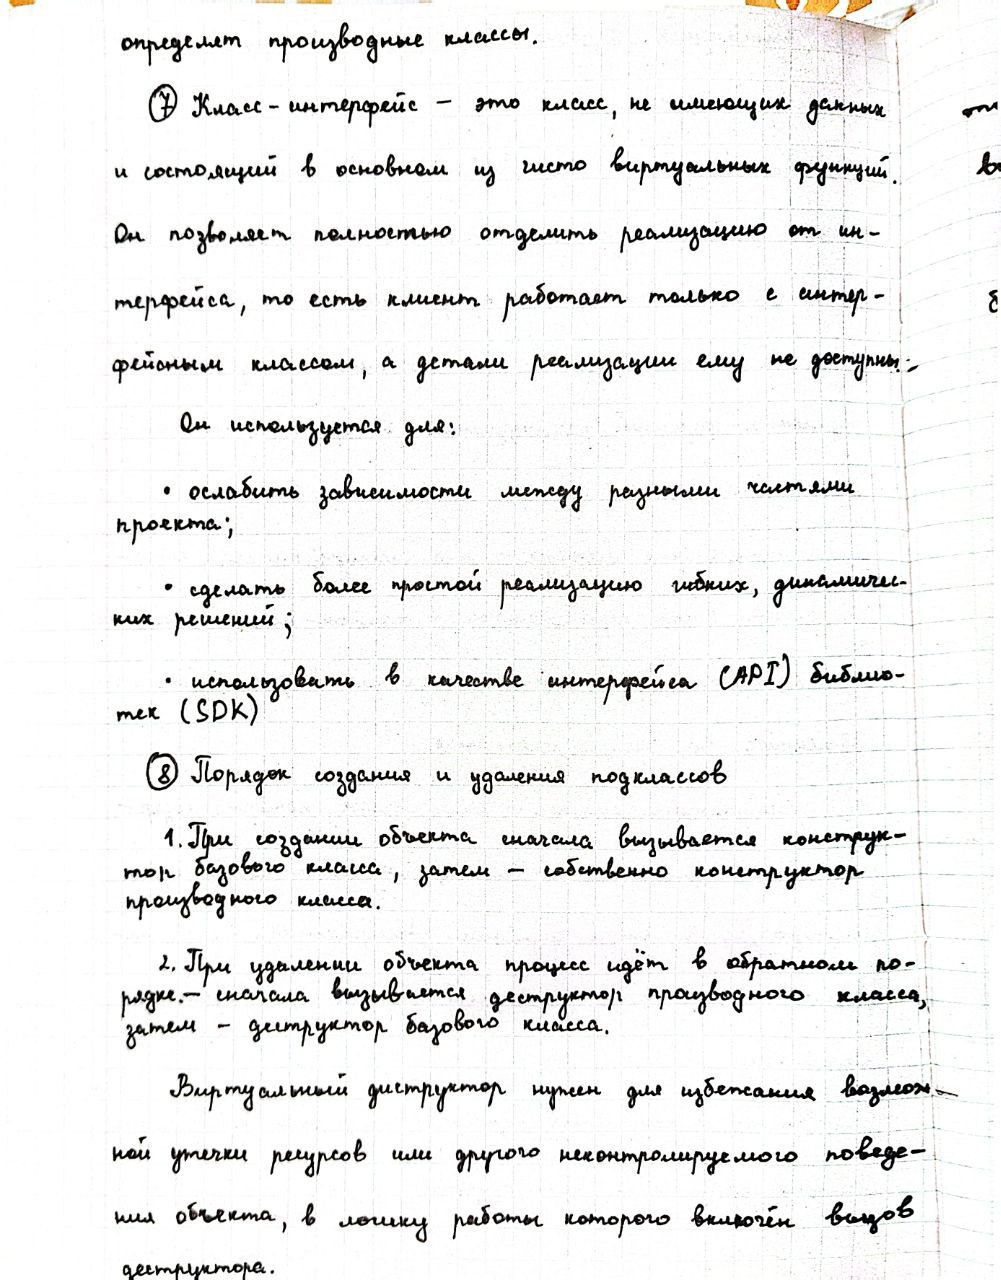 определят производные классы.
⑦ Класс-интерфейс – это класс, не имеющих данных
и состоящий в основном из чисто виртуальных функций.
Он позволяет полностью отделить реализацию от ин-
терфейса, то есть клиент работает только с интер-
фейсным классом, а детали реализации ему не доступны.
Он используется для:
• ослабить зависимости между разными частями
проекта;
• сделать более простой реализацию гибких, динамичес-
ких решений;
• использовать в качестве интерфейса (API) библио-
тек (SDK)
⑧ Порядок создания и удаления подклассов
1. При создании объекта сначала вызывается конструк-
тор базового класса, затем – собственно конструктор
производного класса.
2. При удалении объекта процесс идёт в обратном по-
рядке. – сначала вызывается деструктор производного класса,
затем – деструктор базового класса.
Виртуальный диструктор нужен для избежания возмож-
ной утечки ресурсов или другого неконтролируемого поведе-
ния объекта, в логику работы которого включён вызов
деструктора.